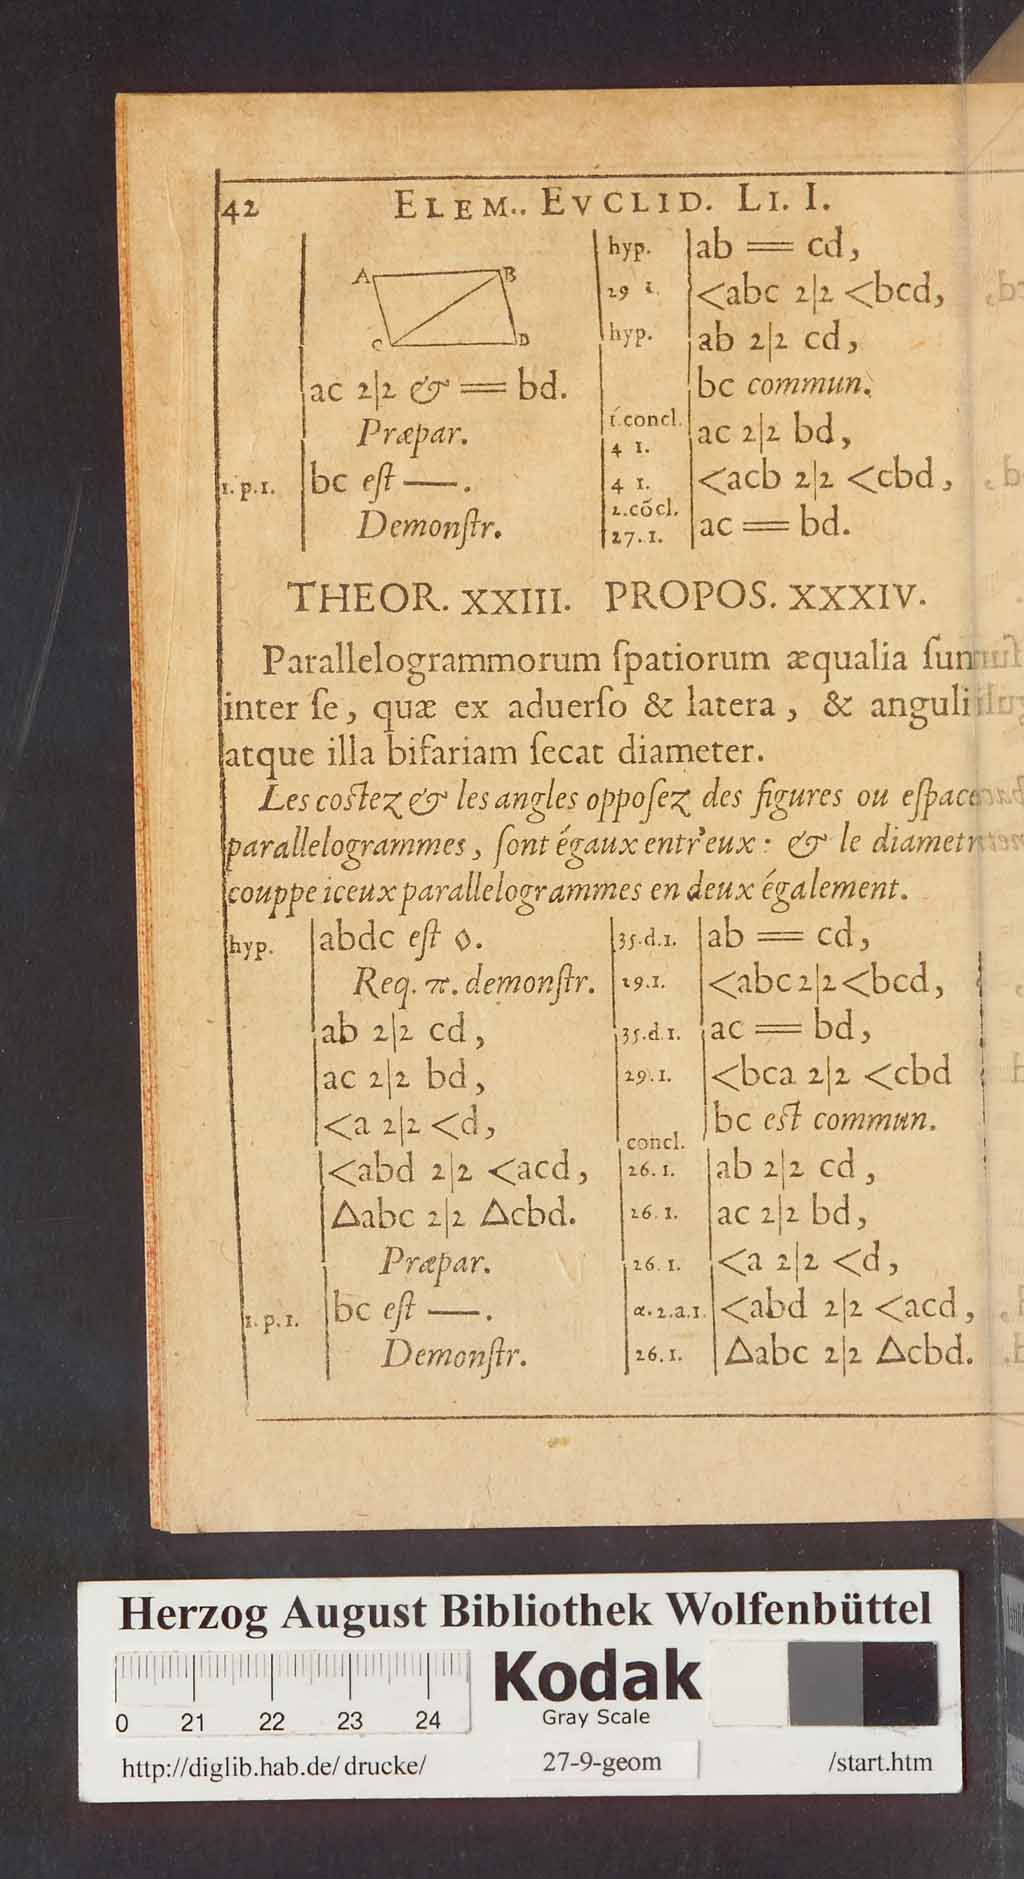 42 ELEM.. EVCLID. LI. I.
A B
C D
ac 2|2 & = bd.
Præpar.
1. p. 1. bc eſt —.
Demonſtr.
hyp. ab = cd,
29 i. <abc 2|2 <bcd,
hyp. ab 2|2 cd,
bc commun.
1.concl.
4 1. ac 2|2 bd,
4 1. <acb 2|2 <cbd,
2.cõcl.
27.1. ac = bd.
THEOR. XXIII. PROPOS. XXXIV.
Parallelogrammorum ſpatiorum æqualia ſunt
inter ſe, quæ ex aduerſo & latera, & anguli
atque illa bifariam ſecat diameter.
Les coſtez & les angles oppoſez des figures ou eſpaces
parallelogrammes, ſont égaux entr'eux: & le diametre
couppe iceux parallelogrammes en deux également.
hyp. abdc eſt ◊.
Req. π. demonſtr.
ab 2|2 cd,
ac 2|2 bd,
<a 2|2 <d,
<abd 2|2 <acd,
△abc 2|2 △cbd.
Præpar.
1. p. 1. bc eſt —.
Demonſtr.
35.d.1. ab = cd,
29.1. <abc 2|2 <bcd,
35.d.1. ac = bd,
29.1. <bca 2|2 <cbd
bc eſt commun.
concl.
26.1. ab 2|2 cd,
26.1. ac 2|2 bd,
26.1. <a 2|2 <d,
α.2.a.1. <abd 2|2 <acd,
26.1. △abc 2|2 △cbd.
Herzog August Bibliothek Wolfenbüttel
0 21 22 23 24
Kodak
Gray Scale
http://diglib.hab.de/drucke/ 27-9-geom /start.htm